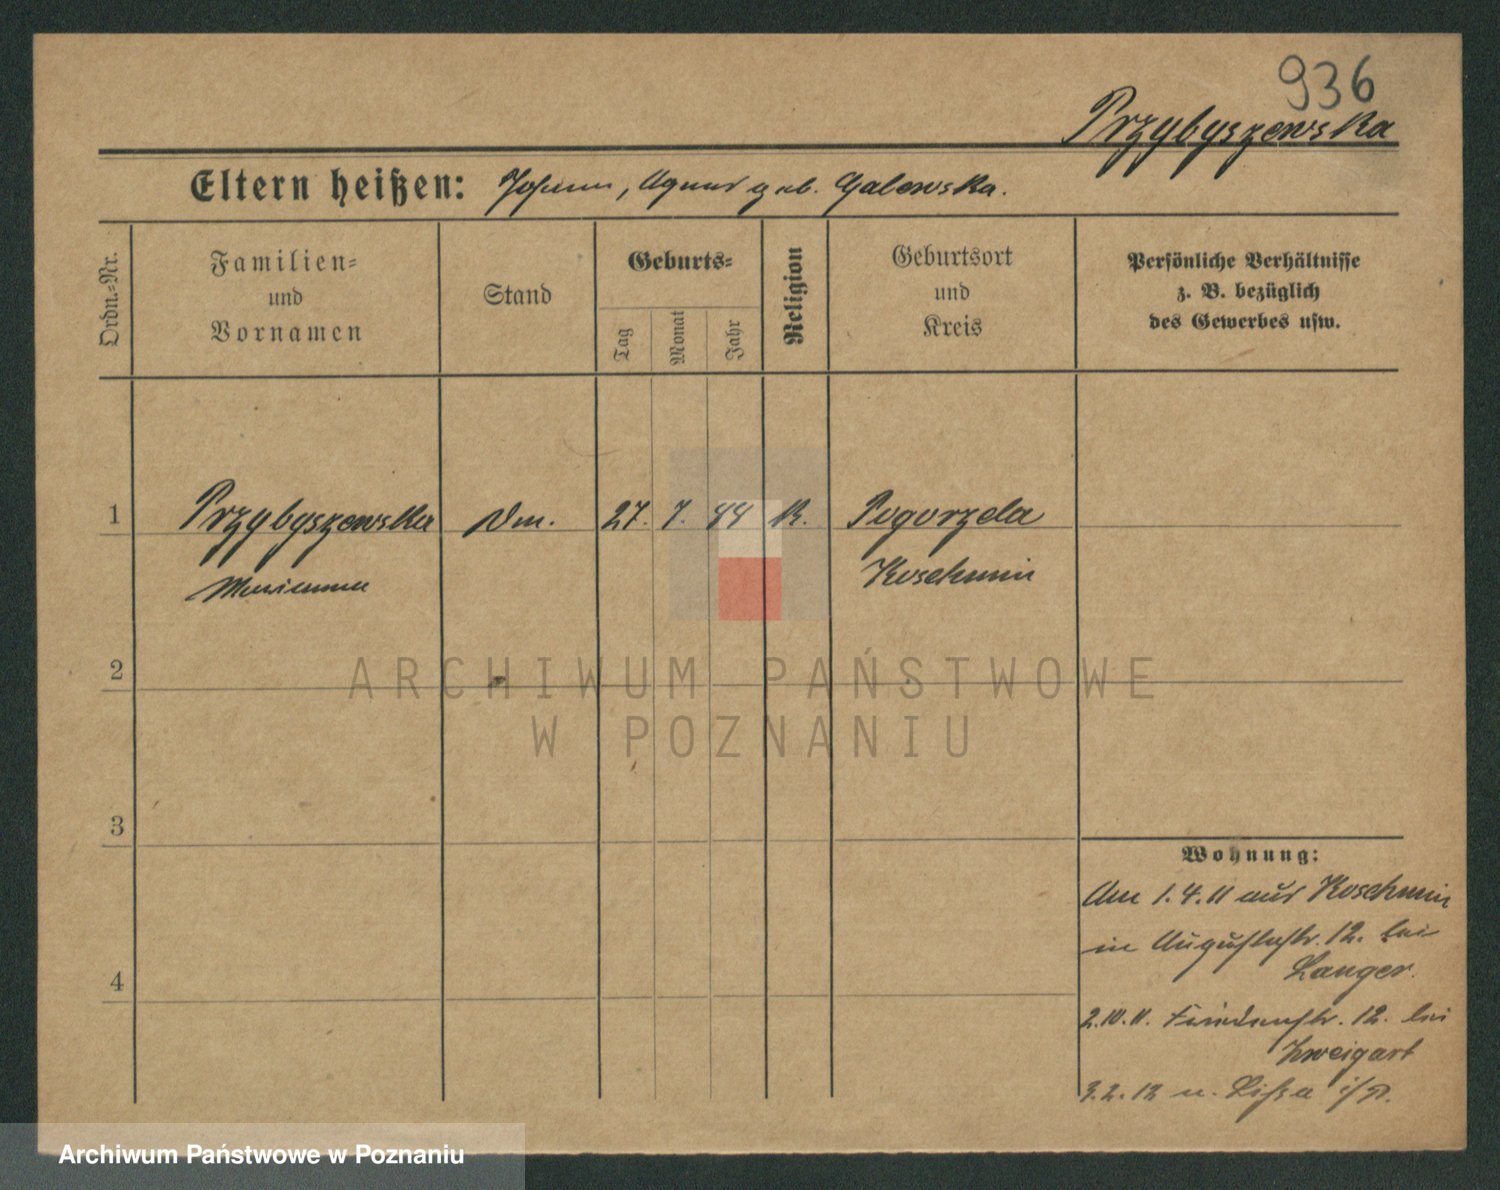 936
Przybyszewska
Eltern heißen: Johann, Agnes geb. Galewska.
Ordn.=Nr.
Familien=
und
Vornamen
Stand
Geburts=
Tag
Monat
Jahr
Religion
Geburtsort
und
Kreis
Persönliche Verhältnisse
z. B. bezüglich
des Gewerbes usw.
1 Przybyszewska Dm. 27. 7. 44 K. Pogorzela
Marianna Koschmin
2
3
4
Wohnung:
Am 1.4.11 aus Koschmin
in Augustastr. 12. bei
Langer.
2.10.11. Friedenstr. 12. bei
Zweigart
3.2.12 n. Lissa i/P.
ARCHIWUM PAŃSTWOWE
W POZNANIU
Archiwum Państwowe w Poznaniu